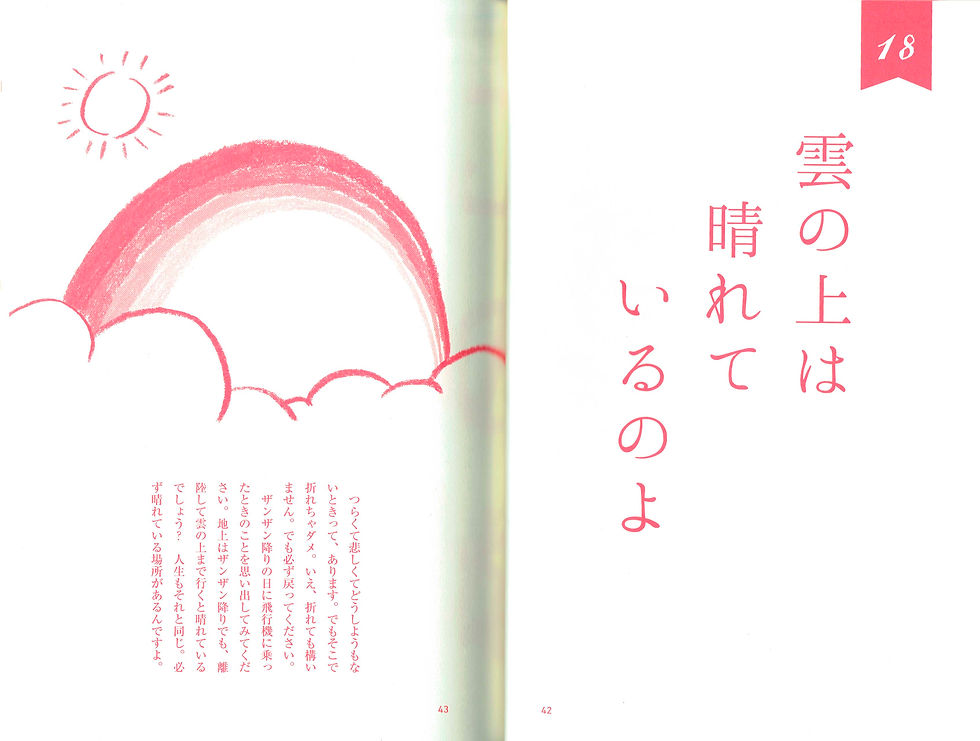 18
雲の上は
晴れて
いるのよ
42
つらくて悲しくてどうしようもな
いときって、あります。でもそこで
折れちゃダメ。いえ、折れても構い
ません。でも必ず戻ってください。
ザンザン降りの日に飛行機に乗っ
たときのことを思い出してみてくだ
さい。地上はザンザン降りでも、離
陸して雲の上まで行くと晴れている
でしょう? 人生もそれと同じ。必
ず晴れている場所があるんですよ。
43